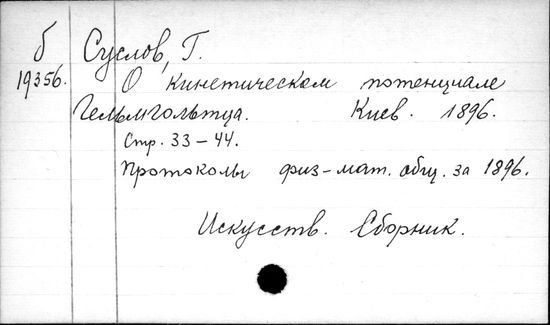 б Суслов, Г.
19356. О кинетическом потенциале
Гельмгольтца. Киев. 1896.
Стр. 33-44.
Протоколы физ-мат. общ. за 1896.
Искусств. Сборник.